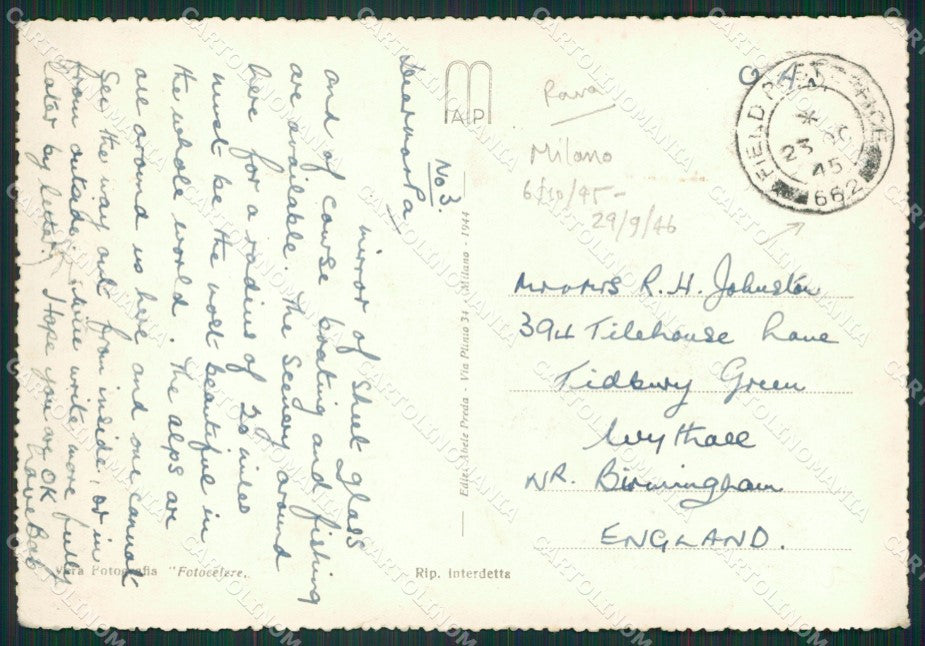 No 3.
Dear Mor Pa
mirror of sheet glass
and of course boating and fishing
are available. The scenery around
here for a radius of 20 miles
must be the most beautiful in
the whole world. The alps are
all around us here and one cannot
see the way out from inside, or in
from outside. Will write more fully
later by letter. Hope you are OK
Love Bob
MAP
Rara
Milano
6/10/45-
29/9/46
O.A.S.
FIELD POST OFFICE
23 DC
45
662
Mr & Mrs R. H. Johnston
394 Tilehouse Lane
Tidbury Green
Wythall
NR. Birmingham
ENGLAND.
Ediz. Abele Preda - Via Plinio 34 - Milano - 1944
Vera Fotografia "Fotocelere"
Rip. interdetta
CARTOLINOMANIA